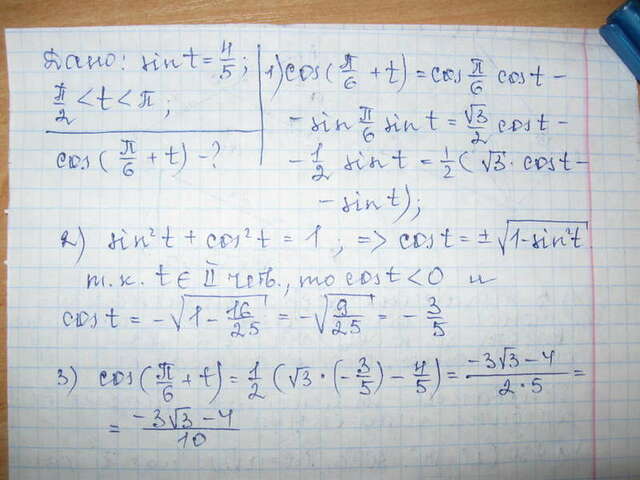 Дано: sin t = 4/5;
π/2 < t < π;
cos(π/6 + t) - ?
1) cos(π/6 + t) = cos π/6 cos t -
- sin π/6 sin t = √3/2 cos t -
- 1/2 sin t = 1/2 (√3 · cos t -
- sin t);
2) sin²t + cos²t = 1 ; => cos t = ±√(1-sin²t)
т.к. t ∈ II четв., то cos t < 0 и
cos t = -√(1 - 16/25) = -√(9/25) = - 3/5
3) cos(π/6 + t) = 1/2 (√3 · (-3/5) - 4/5) = (-3√3 - 4)/(2·5) =
= (-3√3 - 4)/10